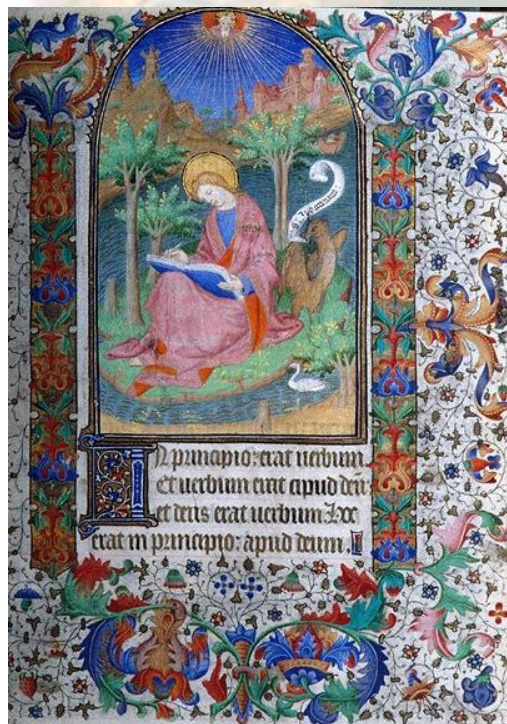 In principio: erat uerbum.
Et uerbum erat apud deū
et deus erat uerbum. Hoc
erat in principio: apud deum.